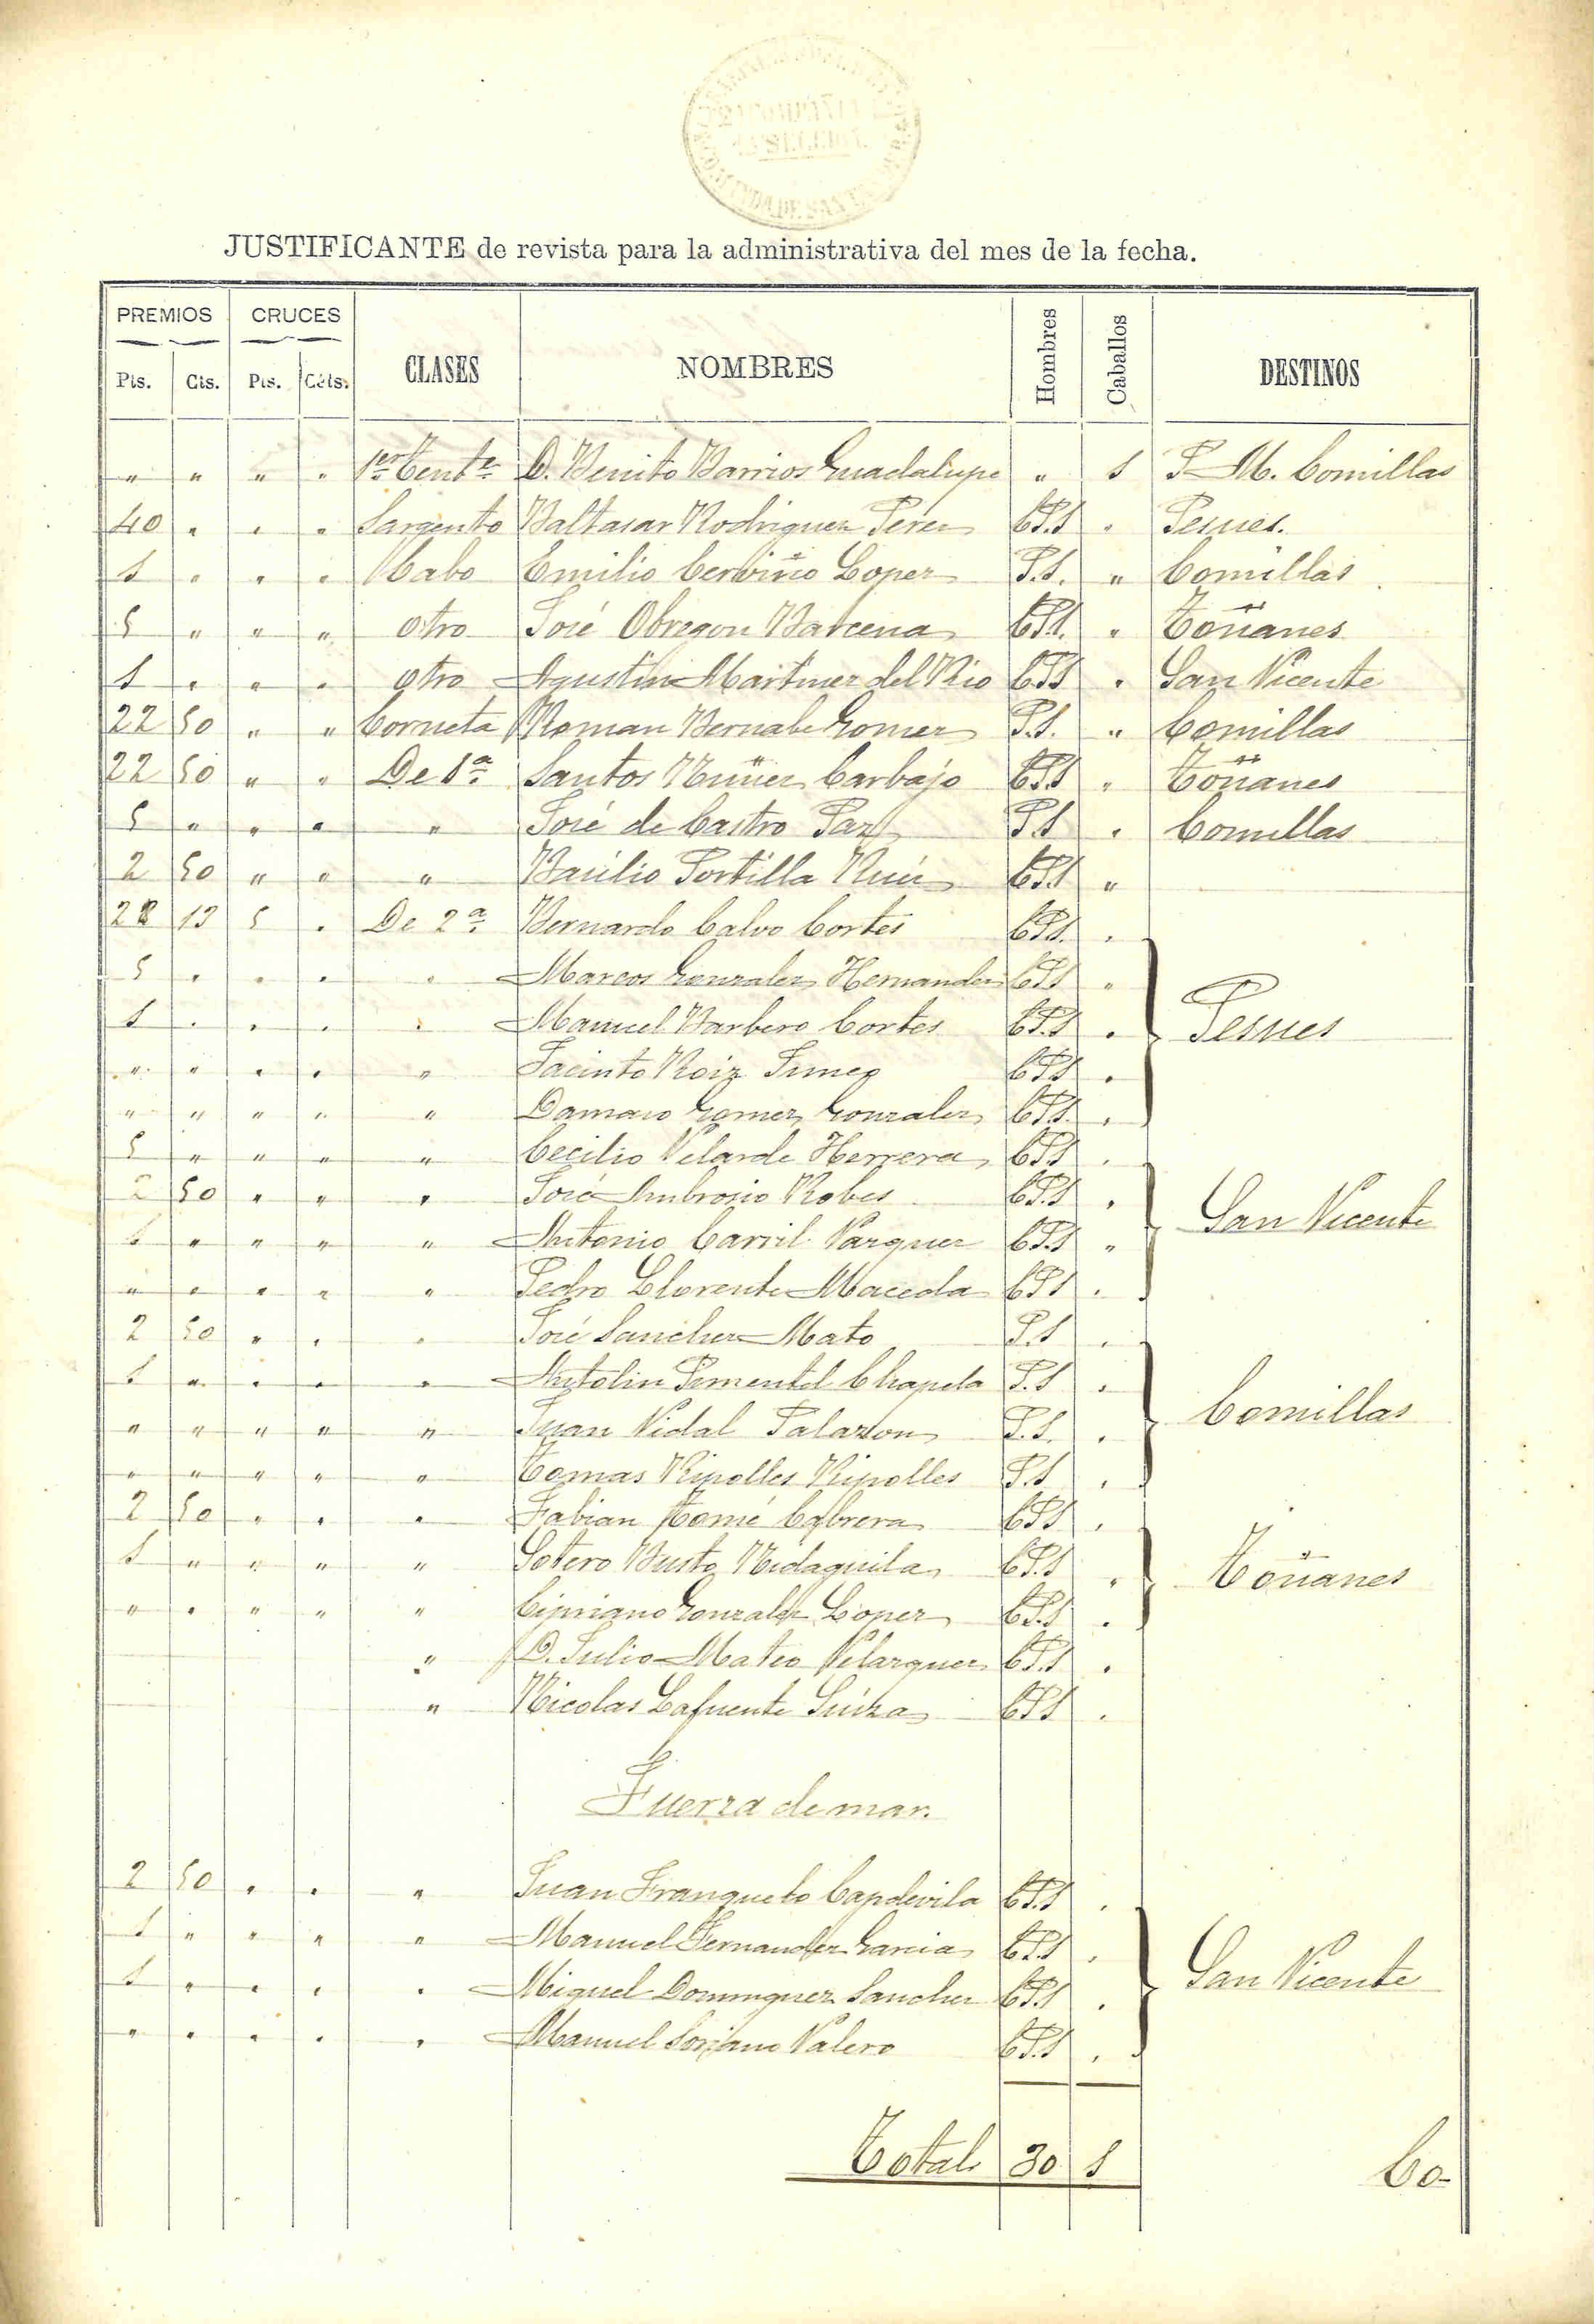 JUSTIFICANTE de revista para la administrativa del mes de la fecha.
PREMIOS CRUCES CLASES NOMBRES Hombres Caballos DESTINOS
Pts. Cts. Pts. Céts.
" " " " 1er Tente D. Benito Barrios Guadalupe " 1 P. M. Comillas
40 " " " Sargento Baltasar Rodriguez Perez CP.1 " Pesues.
1 " " " Cabo Emilio Cerviño Lopez P.1. " Comillas
5 " " " otro José Obregon Barcena CP1. " Toñanes
1 " " " otro Agustin Martinez del Rio CP1 " San Vicente
22 50 " " Corneta Roman Bernabe Gomez P.1. " Comillas
22 50 " " De 1ª Santos Nuñez Carbajo CP1 " Toñanes
5 " " " " José de Castro Paz P.1 " Comillas
2 50 " " " Basilio Portilla Ruiz CP1 "
28 13 5 " De 2ª Bernardo Calvo Cortés CP1. "
5 " " " " Marcos Gonzalez Hernandez CP1 "
1 " " " " Manuel Barbero Cortes CP.1 " Pesues
" " " " " Jacinto Roiz CP1 "
" " " " " Damaso Gomez Gonzalez CP1. "
5 " " " " Cecilio Velarde Herrera CP1 "
2 50 " " " José Ambrosio Robes CP.1 "
1 " " " " Antonio Carril Vazquez CP.1 " San Vicente
" " " " " Pedro Llorente Maceda CP1 "
2 50 " " " José Sanchez Mato P.1 "
1 " " " " Antolin Pimentel Chapela P.1 "
" " " " " Juan Vidal Palazon P.1. " Comillas
" " " " " Tomas Ripolles Ripolles P.1 "
2 50 " " " Fabian Tomé Cabrera CP1 "
1 " " " " Sotero Busto Nidaguila CP.1 " Toñanes
" " " " " Cipriano Gonzalez Lopez CP.1 "
" D. Julio Mateo Velazquez CP.1 "
" Nicolas Lafuente CP1 "
Fuerza de mar.
2 50 " " " Juan Franquelo Capdevila CP.1 "
1 " " " " Manuel Fernandez Garcia CP.1 "
1 " " " " Miguel Dominguez Sanchez CP.1 " San Vicente
" " " " " Manuel Soriano Valero CP.1 "
Total 30 1
Co-